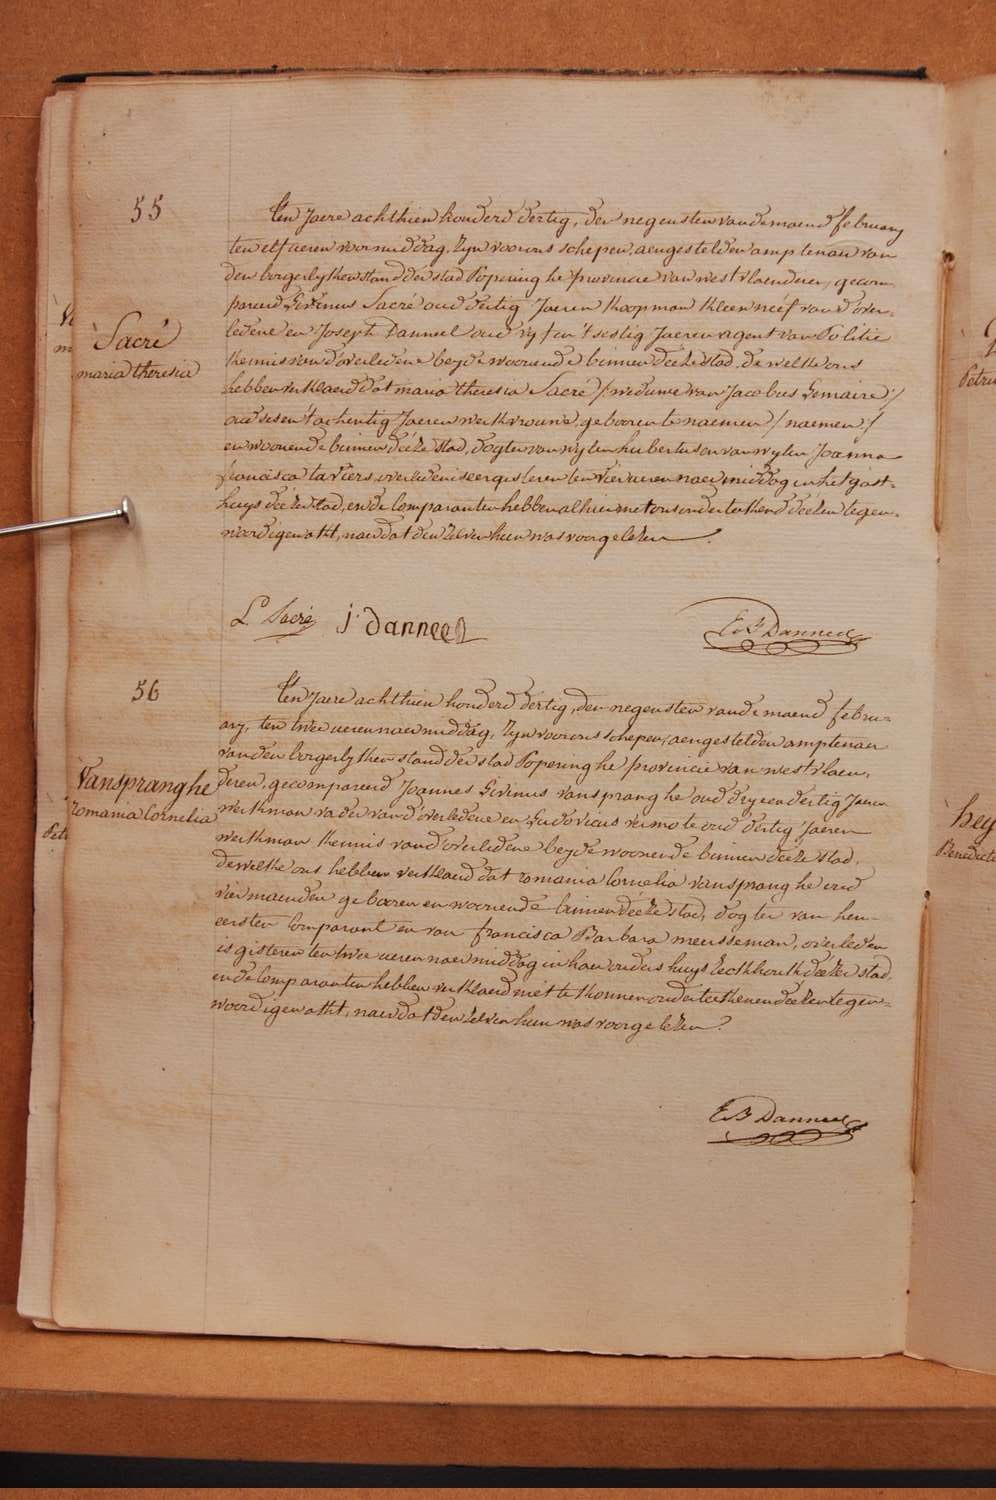 55
Sacré
maria theresia
Ten Jaere achthien honderd dertig, den negensten van de maend february
ten elf ueren voormiddag, Zyn voor ons schepen, aengestelden amptenaer van
den borgerlyken stand der stad Poperinghe provincie van westvlaenderen, gecom-
pareerd Livinus Sacré oud dertig Jaeren Koopman kleen neef van d'over-
ledene en Joseph Danneel oud vyf en 't sestig Jaeren agent van Politie
kennis van d'overledene beyde woonende binnen deeze stad, de welke ons
hebben verklaerd dat maria theresia Sacré /:weduwe van Jacobus Lemaire:/
oud ses en 't achentig Jaeren werkvrouwe, gebooren te naemen / naemen /
en woonende binnen deeze stad, dogter van wylen hubertus en van wylen Joanna
francisca taviers overleden is eergisteren ten vier ueren naermiddag in het gast-
huys deezer stad, en de Comparanten hebben alhier met ons onderteekend deezen tegen-
woordigen akt, naer dat den zelven hun was voorgelezen.
L. Sacré j. Danneel E.B. Danneel
56
Vanspranghe
romania Cornelia
Ten Jaere achthien honderd dertig, den negensten van de maend febru-
ary, ten twee ueren naermiddag, Zyn voor ons schepen, aengestelden amptenaer
van den borgerlyken stand der stad Poperinghe provincie van westvlaen-
deren, gecompareerd Joannes Livinus vanspranghe oud dry en dertig Jaeren
werkman vader van d'overledene en Ludovicus vermote oud dertig Jaeren
werkman kennis van d'overledene beyde woonende binnen deeze stad,
de welke ons hebben verklaerd dat romania Cornelia vanspranghe oud
vier maenden gebooren en woonende binnen deeze stad, dogter van den
eersten Comparant en van francisca Barbara meersseman, overleden
is gisteren ten twee ueren naermiddag in haer ouders huys deezer stad,
en de Comparanten hebben verklaerd niet te konnen onderteekenen deezen tegen-
woordigen akt, naer dat den zelven hun was voorgelezen.
E.B. Danneel
Petru
hey
Benedicte